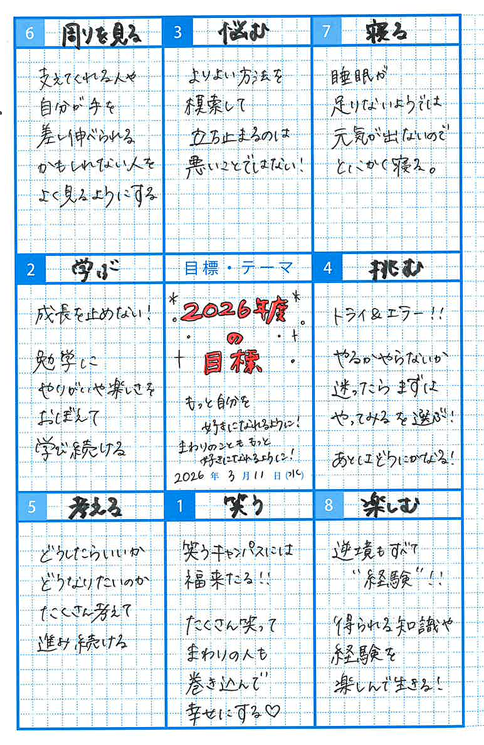 6 周りを見る
支えてくれる人や
自分が手を
差し伸べられる
かもしれない人を
よく見るようにする
3 悩む
よりよい方法を
模索して
立ち止まるのは
悪いことではない！
7 寝る
睡眠が
足りないようでは
元気が出ないので
とにかく寝る。
2 学ぶ
成長を止めない！
勉学に
やりがいや楽しさを
おぼえて
学び続ける
目標・テーマ
2026年度
の
目標
もっと自分を
好きになれるように！
まわりのことももっと
好きになれるように！
2026年3月11日(水)
4 挑む
トライ&エラー！！
やるかやらないか
迷ったらまずは
やってみるを選ぶ！
あとはどうにかなる！
5 考える
どうしたらいいか
どうなりたいのか
たくさん考えて
進み続ける
1 笑う
笑うキャンパスには
福来たる！！
たくさん笑って
まわりの人も
巻き込んで
幸せにする♡
8 楽しむ
逆境もすべて
“経験”！！
得られる知識や
経験を
楽しんで生きる！